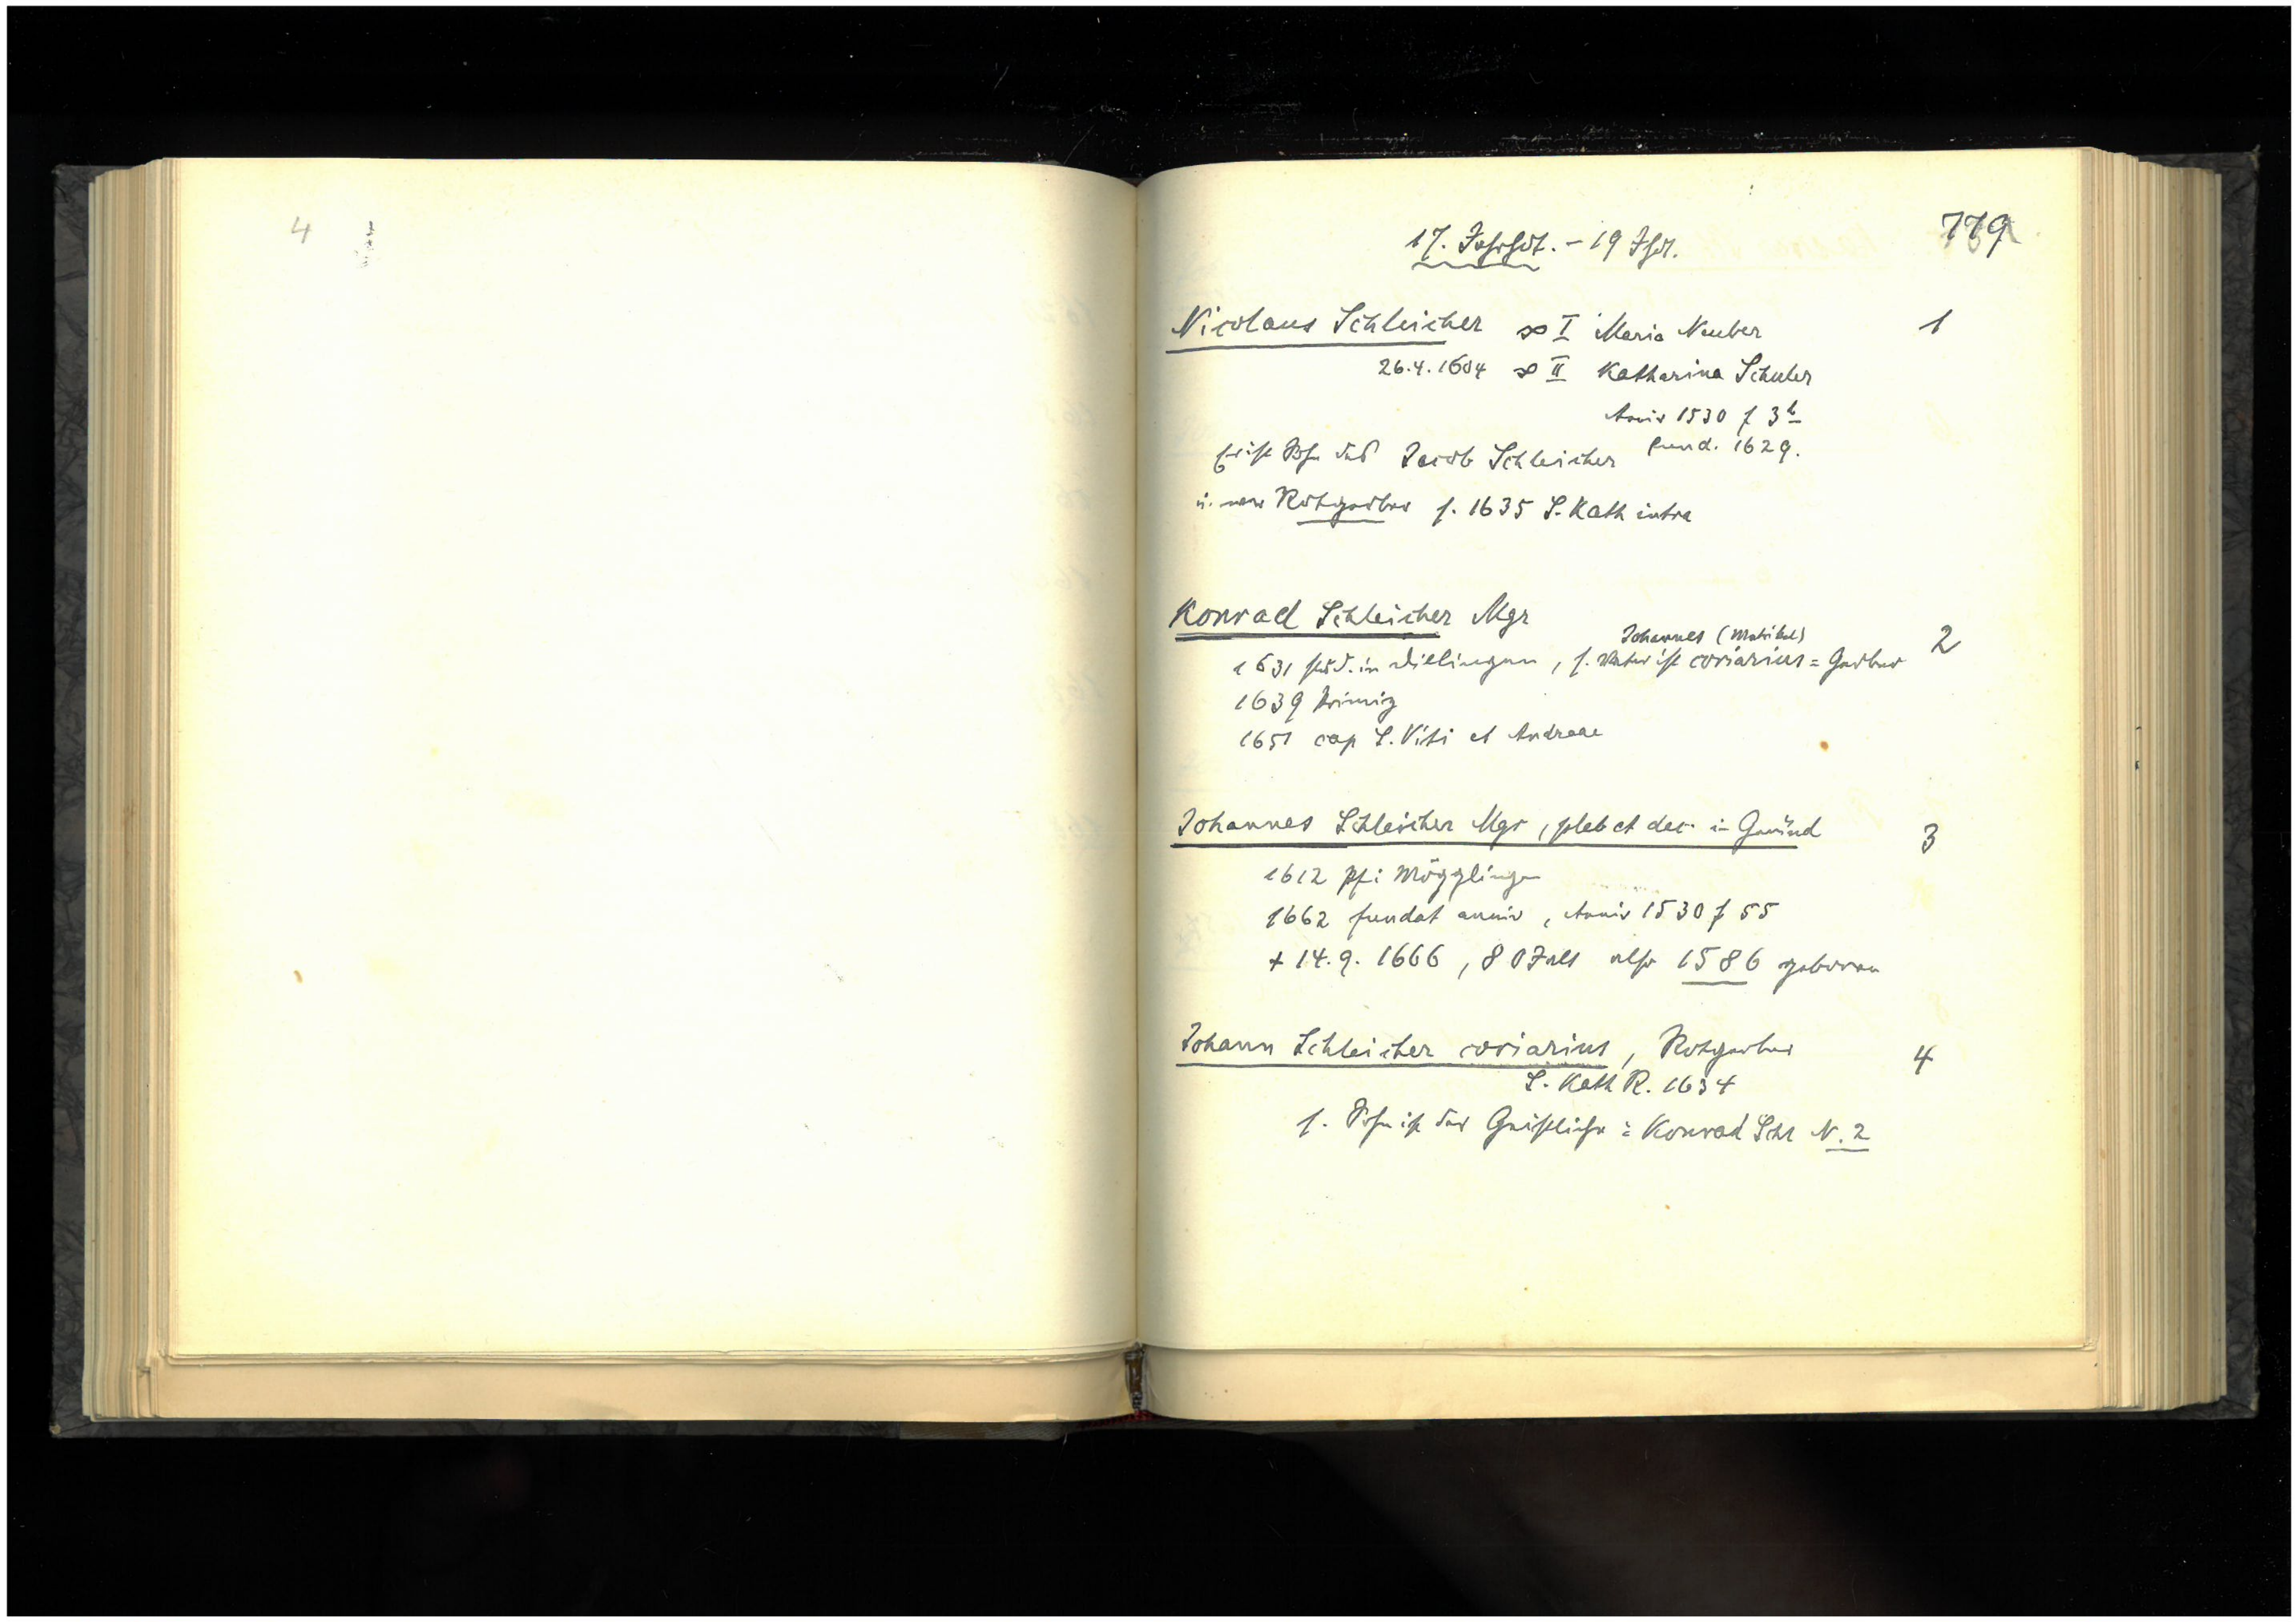 4
779
17. Jahrhdt. - 19 Jhdt.
Nicolaus Schleicher ∞ I Maria Neuber 1
26.4.1604 ∞ II Katharina Schuler
Anniv 1530 f 3b
fund. 1629.
Er ist Sohn des Jacob Schleicher
u. war Rotgerber s. 1635 S. Kath intra
Konrad Schleicher Mgr
Johannes (Matrikel) 2
1631 stud. in Dillingen, s. Vater ist coriarius = Gerber
1639 Primiz
1651 cap S. Viti et Andreae
Johannes Schleicher Mgr, pleb et dec. in Gmünd 3
1612 Pf i Mögglingen
1662 fundat anniv, Anniv 1530 f 55
+ 14.9.1666, 80 J alt also 1586 geboren
Johann Schleicher coriarius, Rotgerber 4
S. Kath R. 1634
s. Sohn ist der Geistliche: Konrad Schl N. 2